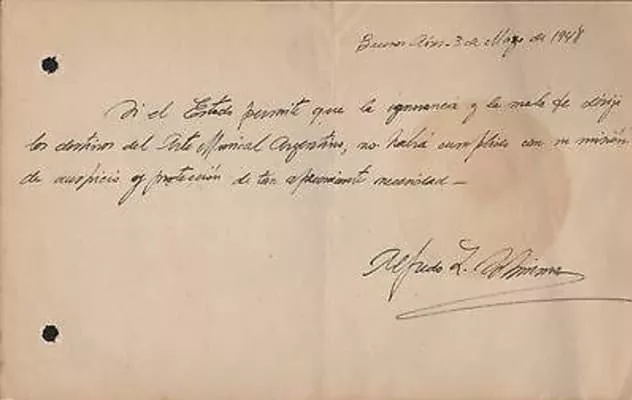 Buenos Aires - 3 de Mayo de 1948
Si el Estado permite que la ignorancia y la mala fe dirija
los destinos del Arte Musical Argentino, no habrá cumplido con su misión
de auspicio y protección de tan apremiante necesidad -
Alfredo L.